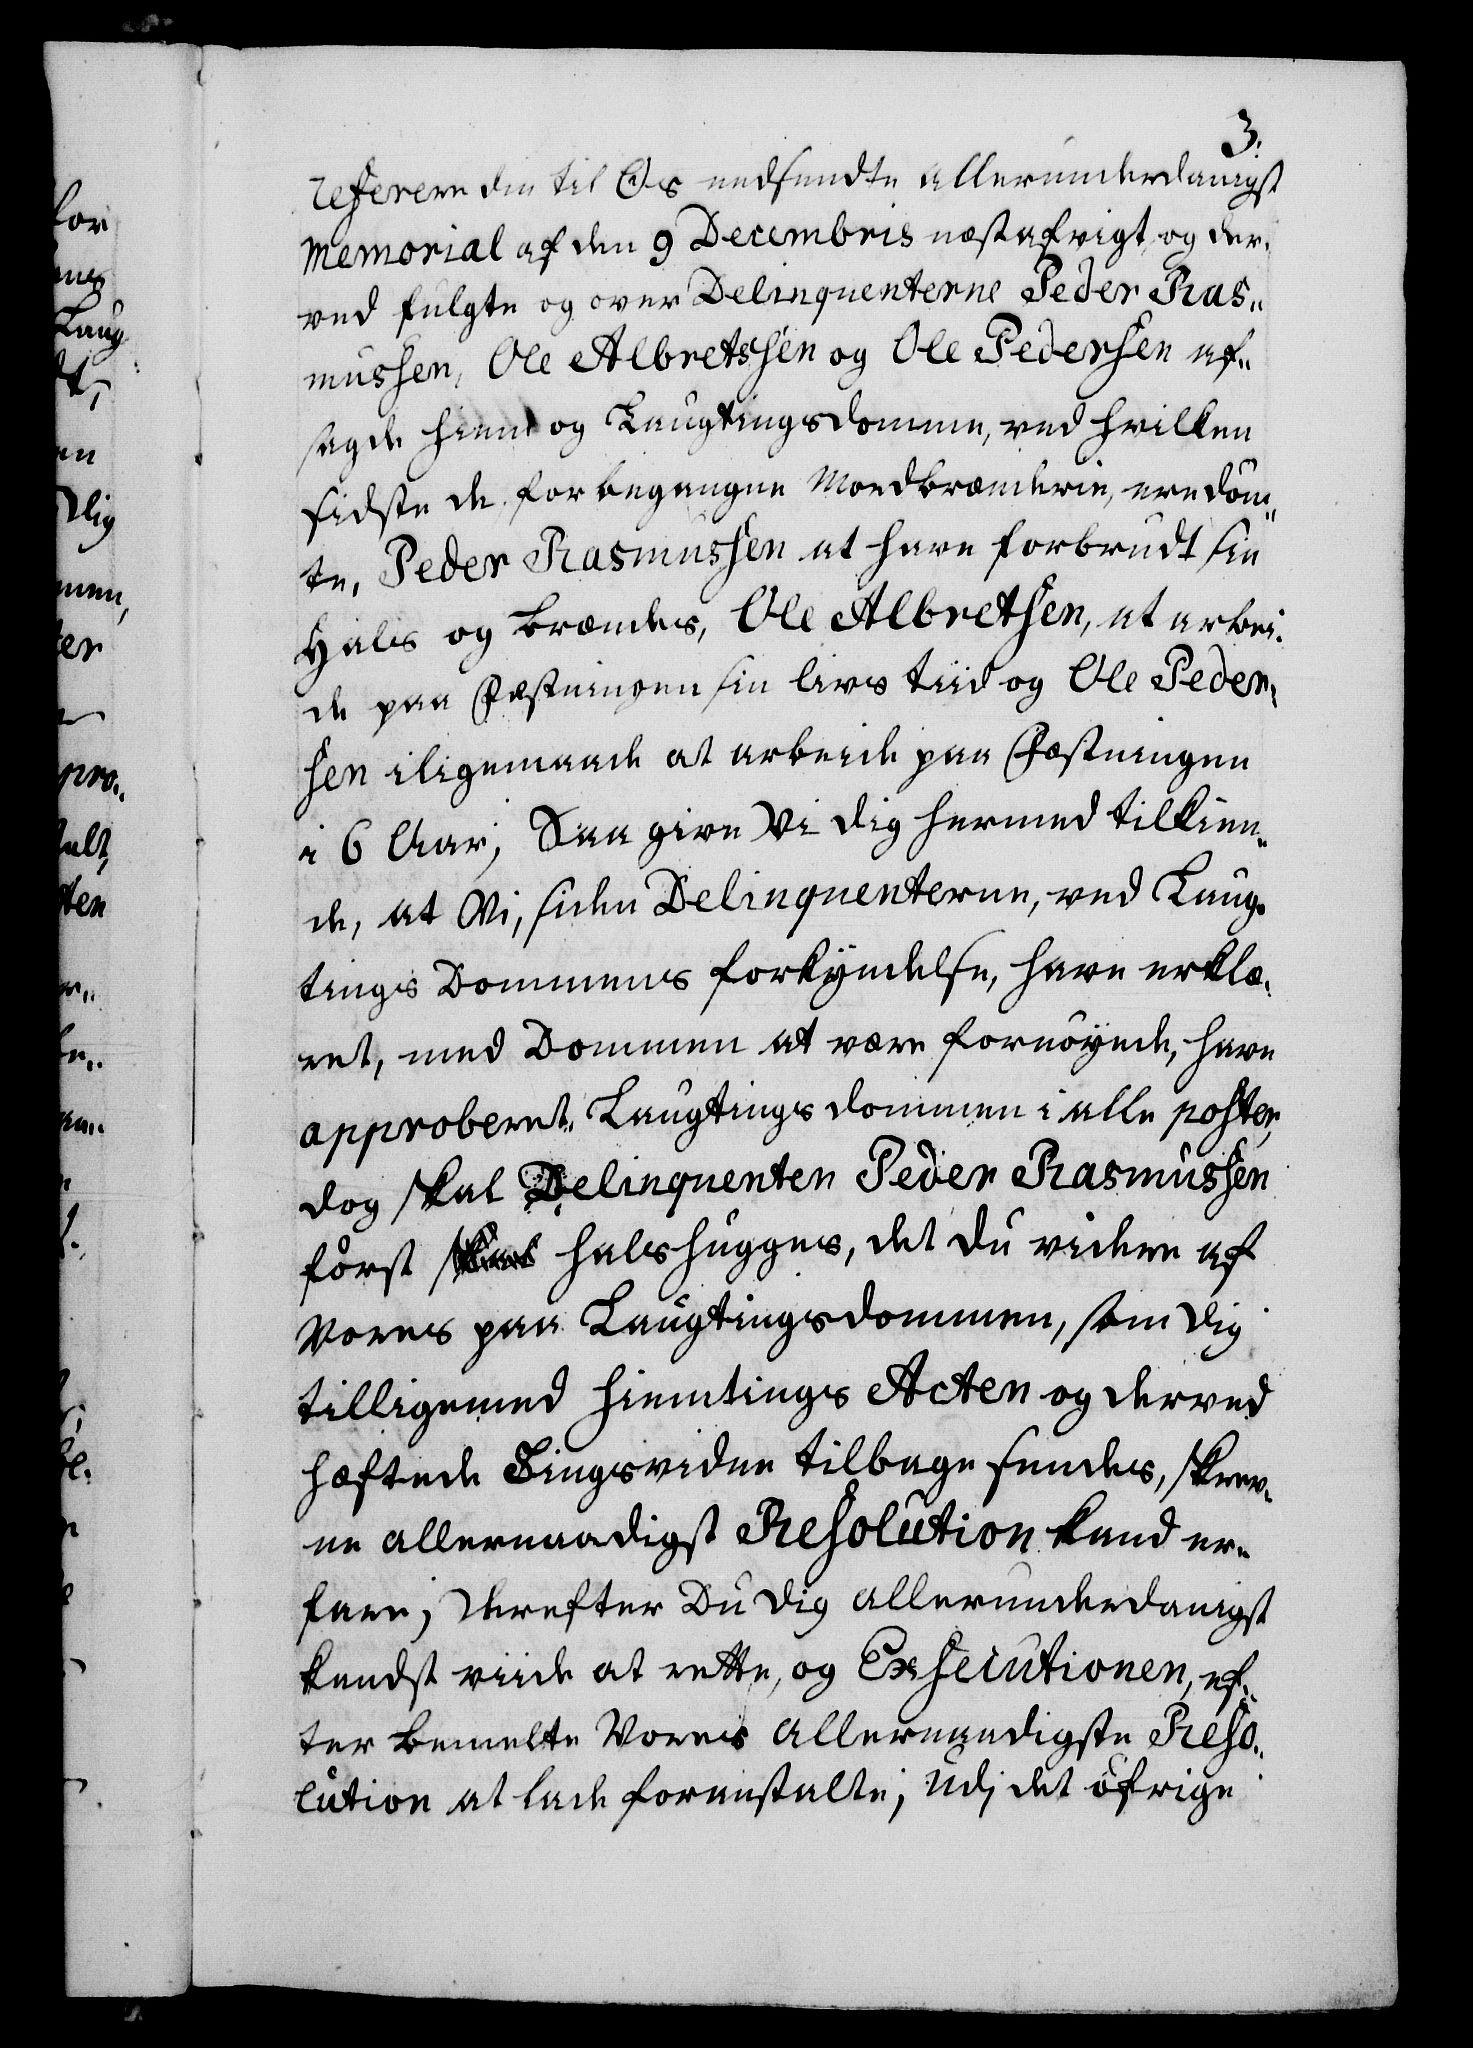 3.
referere din til Os nedsendte allerunderdanigst
Memorial af den 9 Decembris næstafvigt, og der-
ved fulgte og over Delinquenterne Peder Ras-
mussen, Ole Albretssen og Ole Pedersen af-
sagde Hiem og Laugtingsdomme, ved hvilken
sidste de for begangne Mordbrænderie, ere döm-
te, Peder Rasmussen at have forbrudt sin
Hals og brændes, Ole Albretsen, at arbei-
de paa Fæstningen sin livs tiid og Ole Peder-
sen iligemaade at arbeide paa Fæstningen
i 6 Aar; Saa give Vi dig hermed tilkien-
de, at Vi, siden Delinquenterne, ved Laug-
tings Dommens forkyndelse, have erklæ-
ret, med Dommen at være fornöyede, have
approberet Laugtingsdommen i alle poster,
dog skal Delinquenten Peder Rasmussen
först skal halshugges, det du videre af
Vores paa Laugtingsdommen, som dig
tilligemed Hiemtings Acten og derved
hæftede Tingsvidne tilbage sendes, skrev-
ne allernaadigst Resolution kand er-
fare; Derefter Du dig allerunderdanigst
kandst viide at rette, og Exsecutionen, ef-
ter bemelte Vores allernaadigste Reso-
lution at lade foranstalte; Udj det öfrige
for
Laug
en
dlig
men,
ter
pro-
ten